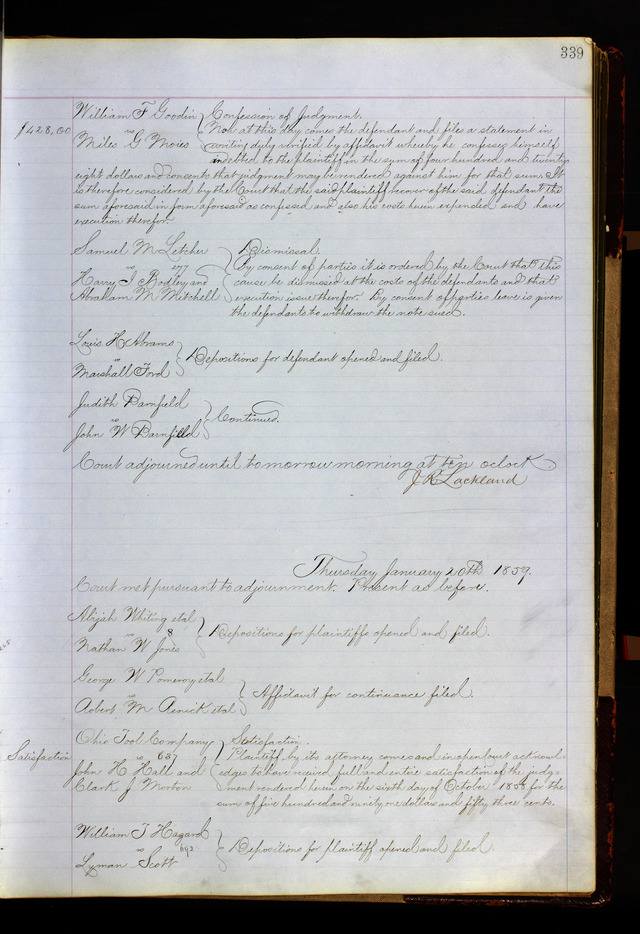 339
William F Goodin Confession of Judgment.
$428,00 vs Now at this day comes the defendant and files a statement in
Miles G Moies writing duly verified by affidavit whereby he confesses himself
indebted to the plaintiff in the sum of four hundred and twenty
eight dollars and consents that judgment may be rendered against him for that sum. It
is therefore considered by the Court that the said plaintiff recover of the said defendant the
sum aforesaid in form aforesaid as confessed and also his costs herein expended and have
execution therefor.
Samuel M Letcher Dismissal.
vs 277 By consent of parties it is ordered by the Court that this
Harry I Bodley and cause be dismissed at the costs of the defendants and that
Abraham M Mitchell execution issue therefor. By consent of parties leave is given
the defendants to withdraw the note sued.
Louis H Abrams
vs Depositions for defendant opened and filed.
Marshall Ford
Judith Barnfield
vs Continued.
John W Barnfield
Court adjourned until tomorrow morning at ten oclock
J R Lackland
Thursday January 20th 1859.
Court met pursuant to adjournment. Present as before.
Abijah Whiting et al
vs 8 Depositions for plaintiffs opened and filed.
Nathan W Jones
George W Pomeroy et al
vs Affidavit for continuance filed.
Robert M Renick et al
Ohio Tool Company Satisfaction.
Satisfaction vs 687 Plaintiff by its attorney comes and in open court acknowl-
John H Hall and edges to have received full and entire satisfaction of the judg-
Clark J Morton ment rendered herein on the sixth day of October 185 for the
sum of five hundred and ninety one dollars and fifty three cents.
William T Hagard
vs Depositions for plaintiff opened and filed.
Lyman Scott